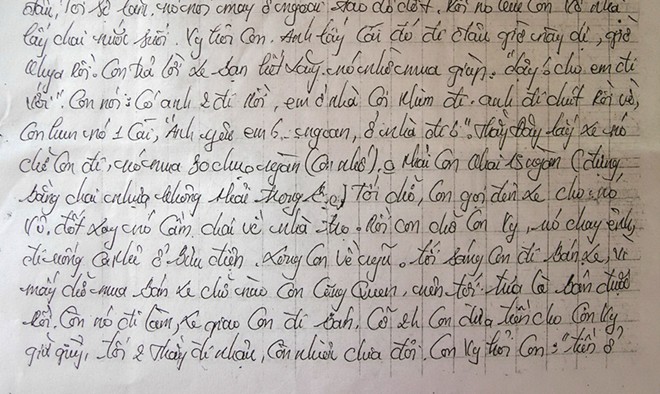 đâu, Tối sẽ bán, nó nói may ở ngoài tao dồ dốt. Rồi nó lên Con về nhà
lấy chai nước suối. Vy hỏi Con. Anh lấy cái đó đi đâu giờ này dị, giờ
khuya rồi. Con trả lời xe bạn hết xăng, nó nhờ mua giùm. "đây 6 cho em đi
với". Con nói: Có anh 2 đi rồi, em ở nhà Coi nhùm đi. anh đi chút rồi về,
Con hun nó 1 Cái, "Anh yêu em 6. ngoan, ở nhà đi 6". Thầy lấy xe nó
chở Con đi, nó mua 30 ngàn (Con nhớ), Chai 15 ngàn (đựng
bằng chai nhựa không phải trong) Tới chỗ, Con gọi đến xe cho nó
Vô. đốt xong nó Cầm chai về nhà. Rồi con chở Con Vy, nó chạy
đi uống Cafê ở Bưu điện. Xong Con về ngủ. tới sáng Con đi bán xe, vì
mấy chỗ mua bán xe chỗ nào Con Cũng Quen, nên tới là bán được
rồi. Còn nó đi làm, xe giao Con đi bán. Cỡ 2h Con đưa tiền cho Con Vy
giữ giùm, tối 2 Thầy đi nhậu, Còn nhiêu chia đôi. Con Vy hỏi Con: "tiền ở